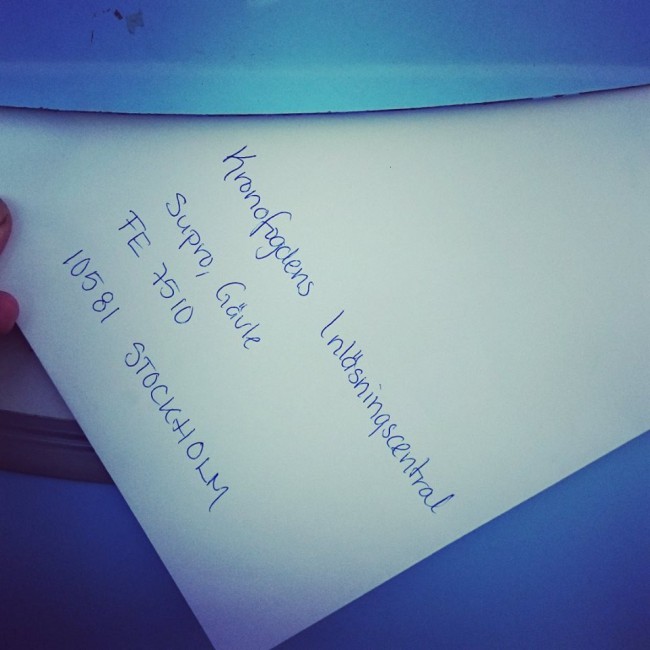 Kronofogdens Inläsningscentral
Supro, Gävle
FE 7510
10581 STOCKHOLM